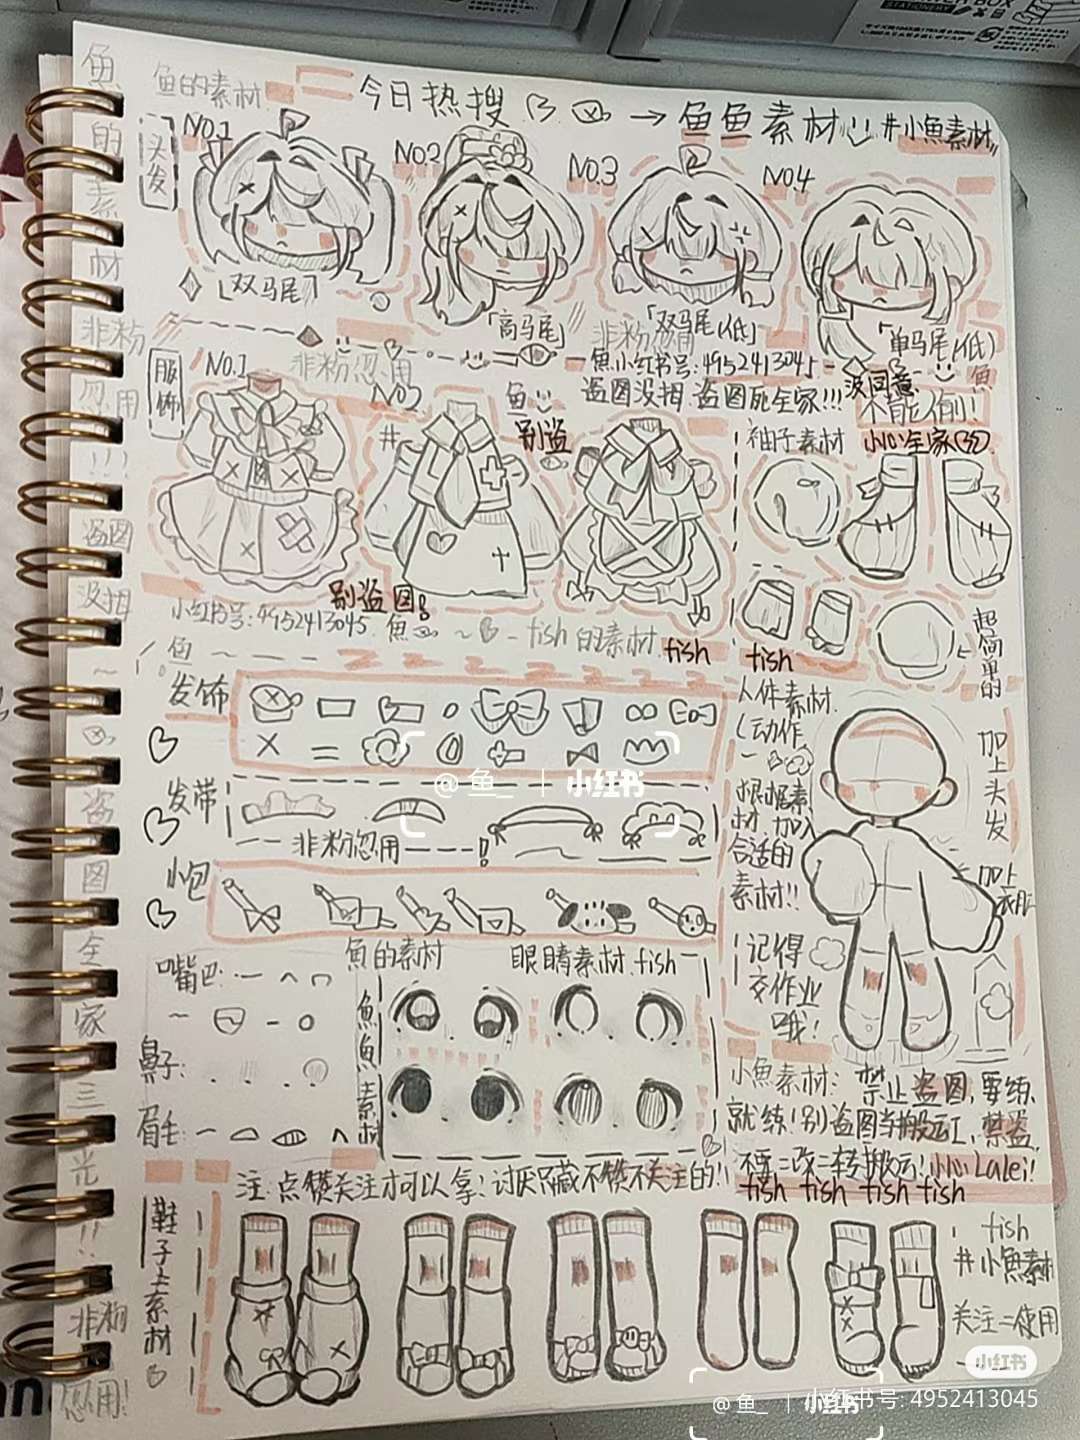 鱼的素材
今日热搜 → 鱼鱼素材 #小魚素材
头发
NO.1
NO.2
NO.3
NO.4
「双马尾」
「高马尾」
「双马尾(低)」
「单马尾(低)」
非粉忽用
魚小红书号:4952413045
盗图没拇 盗图死全家!!!
没同意
不能偷!
小心全家
服饰
NO.1
非粉忽用
NO2
鱼
别盗
袖子素材
别盗图
小红书号:4952413045 魚
fish的素材
fish
fish
超简单的
鱼
发饰
发带
非粉忽用
小包
人体素材
(动作
根据素
材加入
合适的
素材!!
加上头发
加上衣服
记得
交作业
哦!
@鱼_ | 小红书
嘴巴:
鼻子:
眉毛:
魚的素材
眼睛素材.fish
魚魚素材
小魚素材: 禁止盗图,要练
就练!别盗图当搬运工,禁盗
不要二改二转搬运!小心Lalei!
fish fish fish fish
注:点赞关注才可以拿!讨厌只藏不赞不关注的!!
鞋子素材
fish
#小魚素材
关注=使用
鱼的素材
非粉忽用!!!
盗图没拇
盗图全家三光!!
非粉忽用!
小红书
@鱼_ | 小红书
小红书号: 4952413045